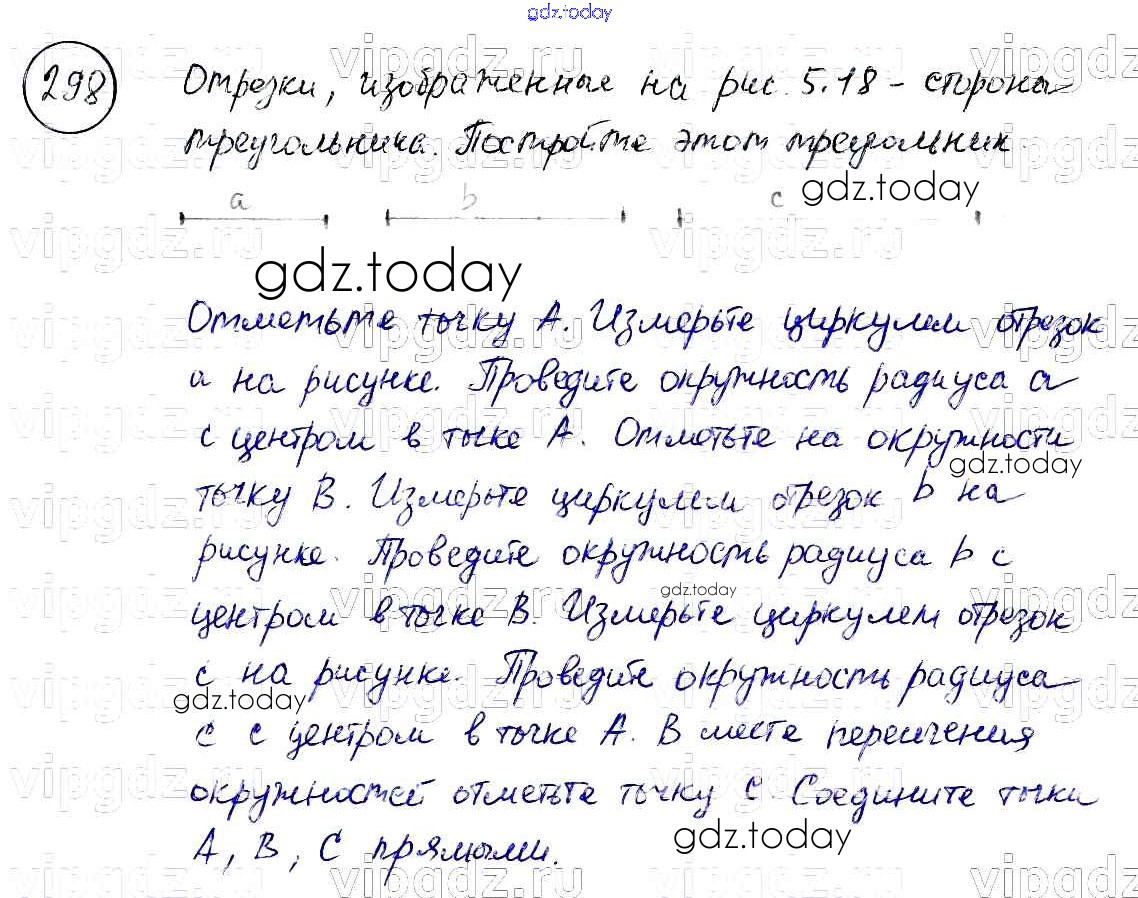 gdz.today
298 Отрезки, изображенные на рис. 5.18 - стороны
треугольника. Постройте этот треугольник.
a b c gdz.today
gdz.today
Отметьте точку А. Измерьте циркулем отрезок
а на рисунке. Проведите окружность радиуса а
с центром в точке А. Отметьте на окружности
gdz.today
точку В. Измерьте циркулем отрезок b на
рисунке. Проведите окружность радиуса b с
gdz.today
центром в точке В. Измерьте циркулем отрезок
с на рисунке. Проведите окружность радиуса
gdz.today
с с центром в точке А. В месте пересичения
окружностей отметьте точку С. Соедините точки
А, В, С прямыми.
gdz.today
vipgdz.ru